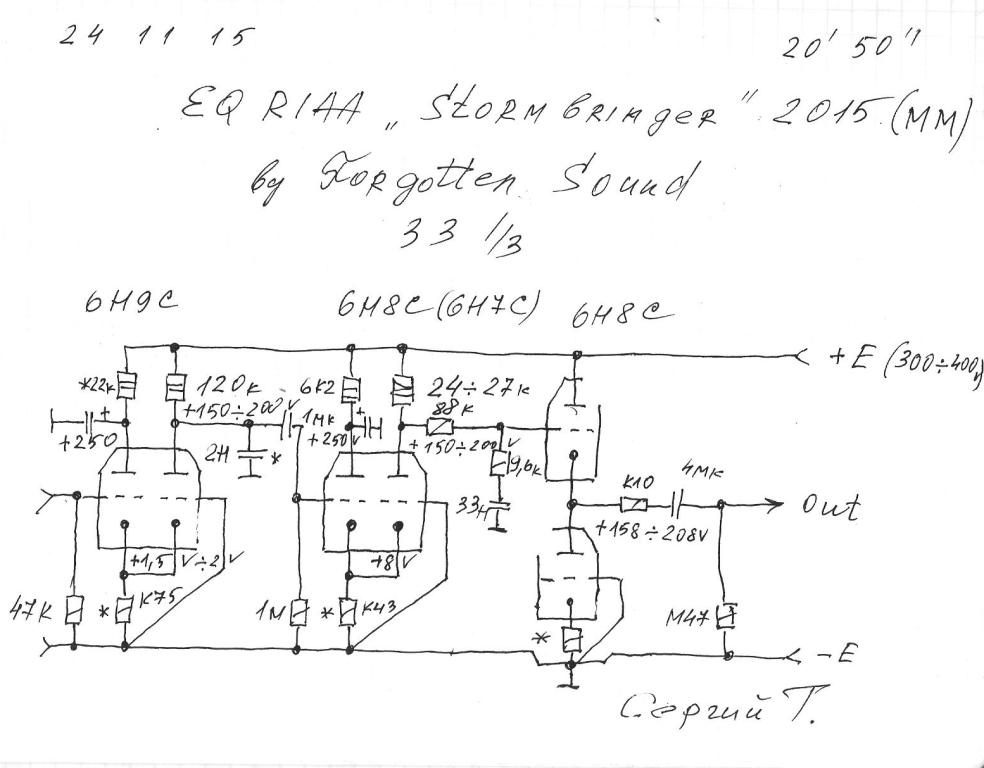 24 11 15
20' 50''
EQ RIAA „Stormbringer" 2015 (MM)
by Forgotten Sound
33 1/3
6Н9С
6Н8С (6Н7С)
6Н8С
+E (300÷400v)
*22к
120к
6к2
24÷27к
+150÷200v
1мк
88к
+250
+250v
+150÷200v
2Н
*
9,6к
33Н
к10
4мк
Out
+158÷208v
+1,5v÷2v
+8v
47к
*
к75
1м
*
к43
*
м47
-E
Сергий Т.